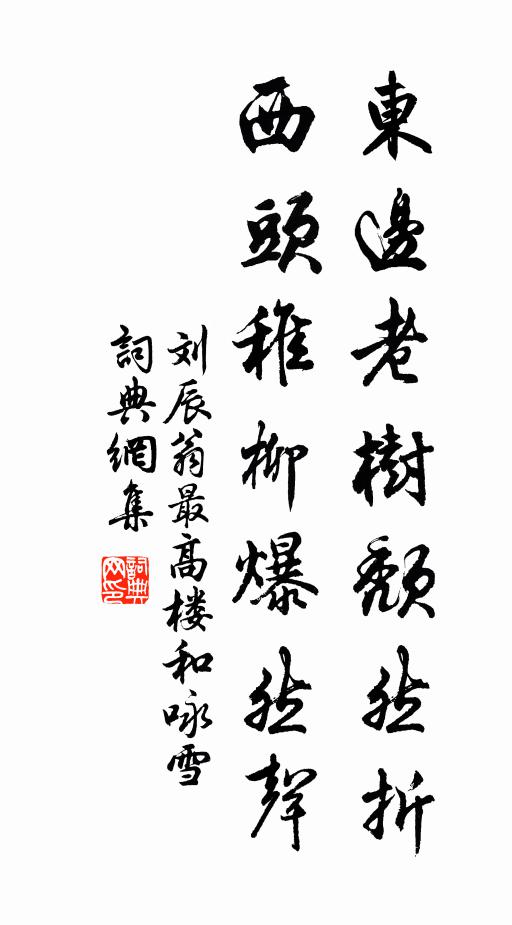 東邊老樹頹然折
西頭稚柳爆然聲
刘辰翁最高楼和咏雪
詞典網集
詞典網印